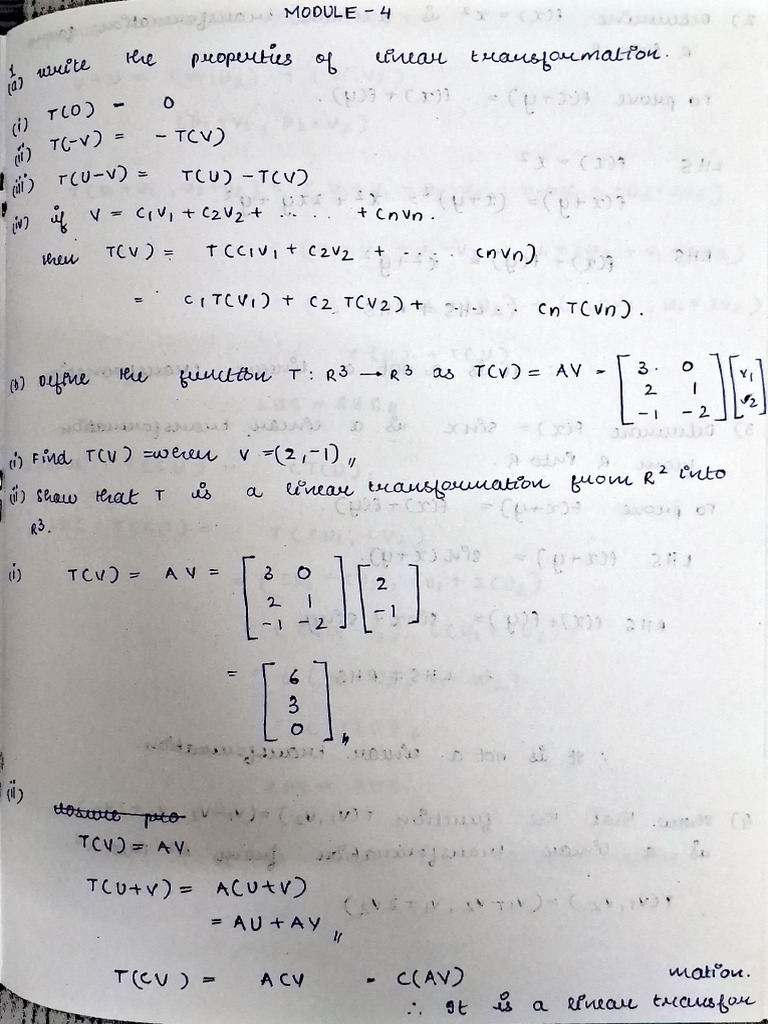 MODULE - 4
1
(a) write the properties of linear transformation.
(i) T(0) = 0
(ii) T(-V) = - T(V)
(iii) T(U-V) = T(U) - T(V)
(iv) if V = C1V1 + C2V2 + ...... + CnVn.
then T(V) = T(C1V1 + C2V2 + ..... CnVn)
= C1T(V1) + C2 T(V2) + ...... CnT(Vn).
(b) Define the function T : R³ → R³ as T(V) = AV = [3 0] [V1]
[2 1] [V2]
[-1 -2]
(i) Find T(V) = when V = (2, -1) ,,
(ii) Show that T is a linear transformation from R² into
R³.
(i) T(V) = AV = [3 0] [2]
[2 1] [-1]
[-1 -2]
= [6]
[3]
[0] ,,
(ii)
T(V) = AV.
T(U+V) = A(U+V)
= AU + AV ,,
T(CU) = ACV = C(AV) mation.
∴ It is a linear transfor